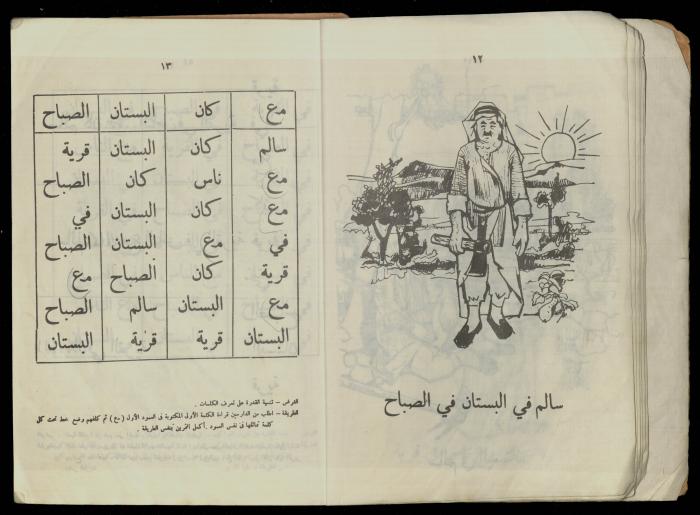 ١٢
سالم في البستان في الصباح
١٣
مع كان البستان الصباح
سالم كان البستان قرية
مع ناس كان الصباح
مع كان البستان في
في مع البستان الصباح
قرية كان الصباح مع
مع البستان سالم الصباح
البستان قرية قرية البستان
الغرض – تنمية القدرة على تعرف الكلمات .
الطريقة – اطلب من الدارسين قراءة الكلمة الأولى المكتوبة فى العمود الأول ( مع ) ثم كلفهم وضع خط تحت كل
كلمة تماثلها فى نفس العمود . أكمل التمرين بنفس الطريقة .